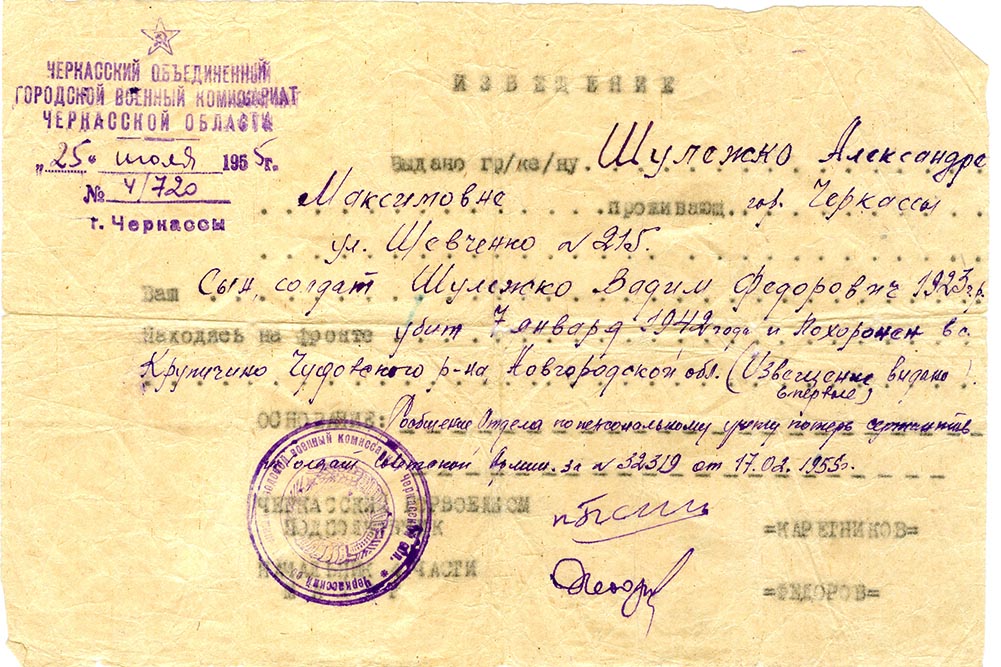 ЧЕРКАССКИЙ ОБЪЕДИНЕННЫЙ
ГОРОДСКОЙ ВОЕННЫЙ КОМИССАРИАТ
ЧЕРКАССКОЙ ОБЛАСТИ
"25" июля 1955 г.
№ 4/720
г. Черкассы
ИЗВЕЩЕНИЕ
Выдано гр/ке/ну. Шулежко Александре
Максимовне проживающ гор. Черкассы
ул. Шевченко № 215.
Ваш Сын, солдат Шулежко Вадим Федорович 1923 г.р.
Находясь на фронте убит 7 января 1942 года и похоронен в с.
Крупичино Чудовского р-на, Новгородской обл. (Извещение выдано
впервые)
ОСНОВАНИЕ: Сообщение Отдела по персональному учету потерь сержантов
и солдат Советской Армии. за № 32319 от 17.02.1955г.
ЧЕРКАССКИЙ ГОРВОЕНКОМ
ПОДПОЛКОВНИК =КАРЕТНИКОВ=
НАЧАЛЬНИК ЧАСТИ
=ФЕДОРОВ=